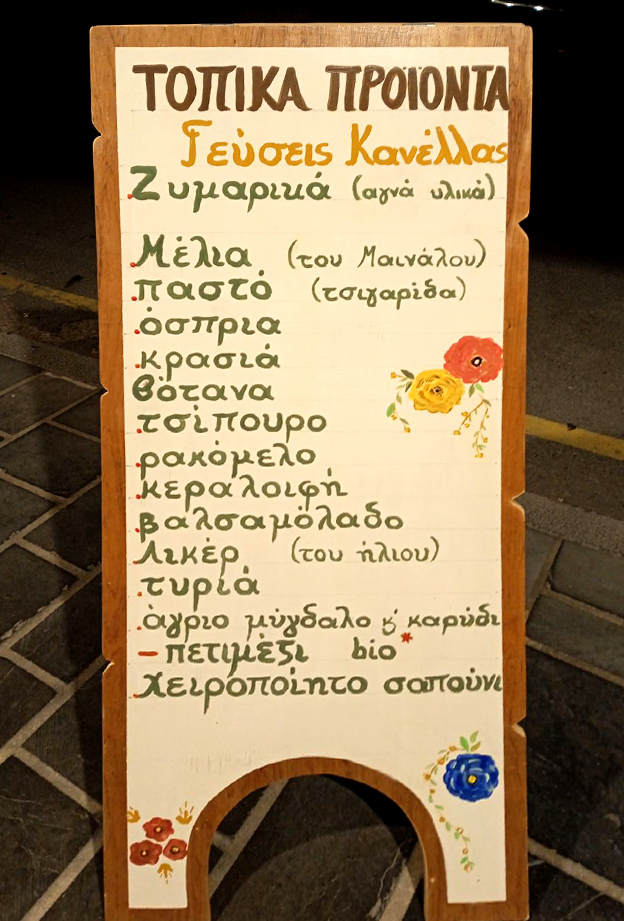 ΤΟΠΙΚΑ ΠΡΟΪΟΝΤΑ
Γεύσεις Κανέλλας
Ζυμαρικά (αγνά υλικά)
Μέλια (του Μαινάλου)
παστό (τσιγαρίδα)
όσπρια
κρασιά
βότανα
τσίπουρο
ρακόμελο
κεραλοιφή
βαλσαμόλαδο
Λικέρ (του ήλιου)
τυριά
άγριο μύγδαλο ϗ καρύδι
- πετιμέζι bio*
Χειροποίητο σαπούνι